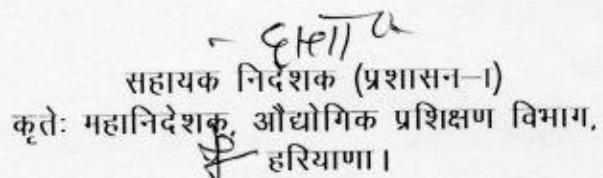 सहायक निर्देशक (प्रशासन–I)
कृतेः महानिदेशक, औद्योगिक प्रशिक्षण विभाग,
हरियाणा।